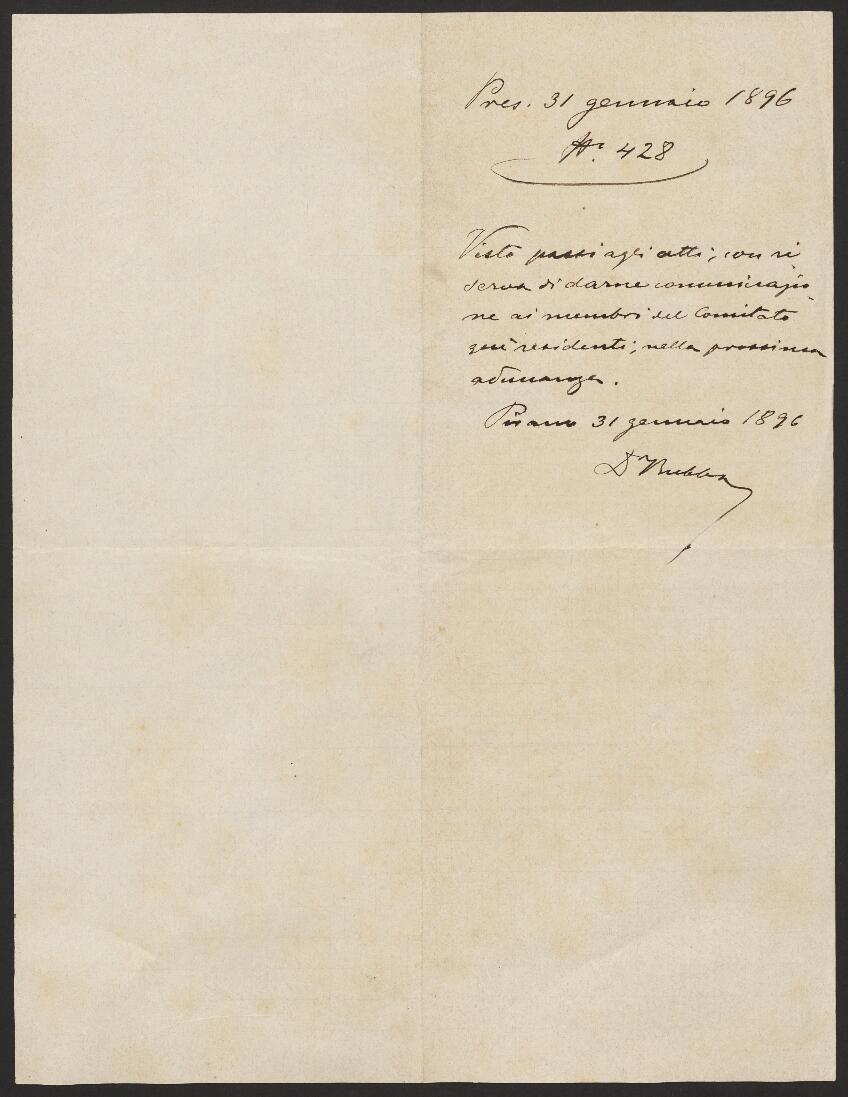 Pres. 31 gennaio 1896
N.r 428
Visto passi agli atti, con ri
serva di darne comunicazio
ne ai membri del Comitato
qui residenti, nella prossima
adunanza.
Pirano 31 gennaio 1896
Dr Bubba